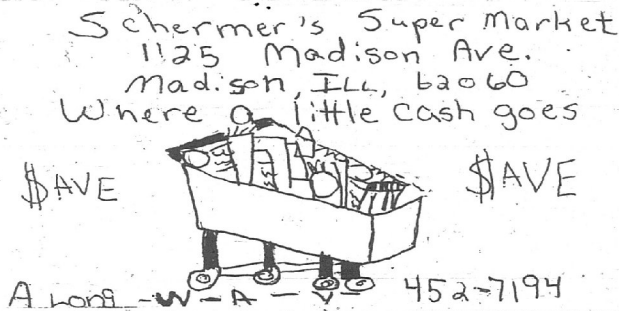 Schermer's Super Market
1125 Madison Ave.
Madison, ILL, 62060
Where a little cash goes
$AVE $AVE
A Long -W-A-Y- 452-7194